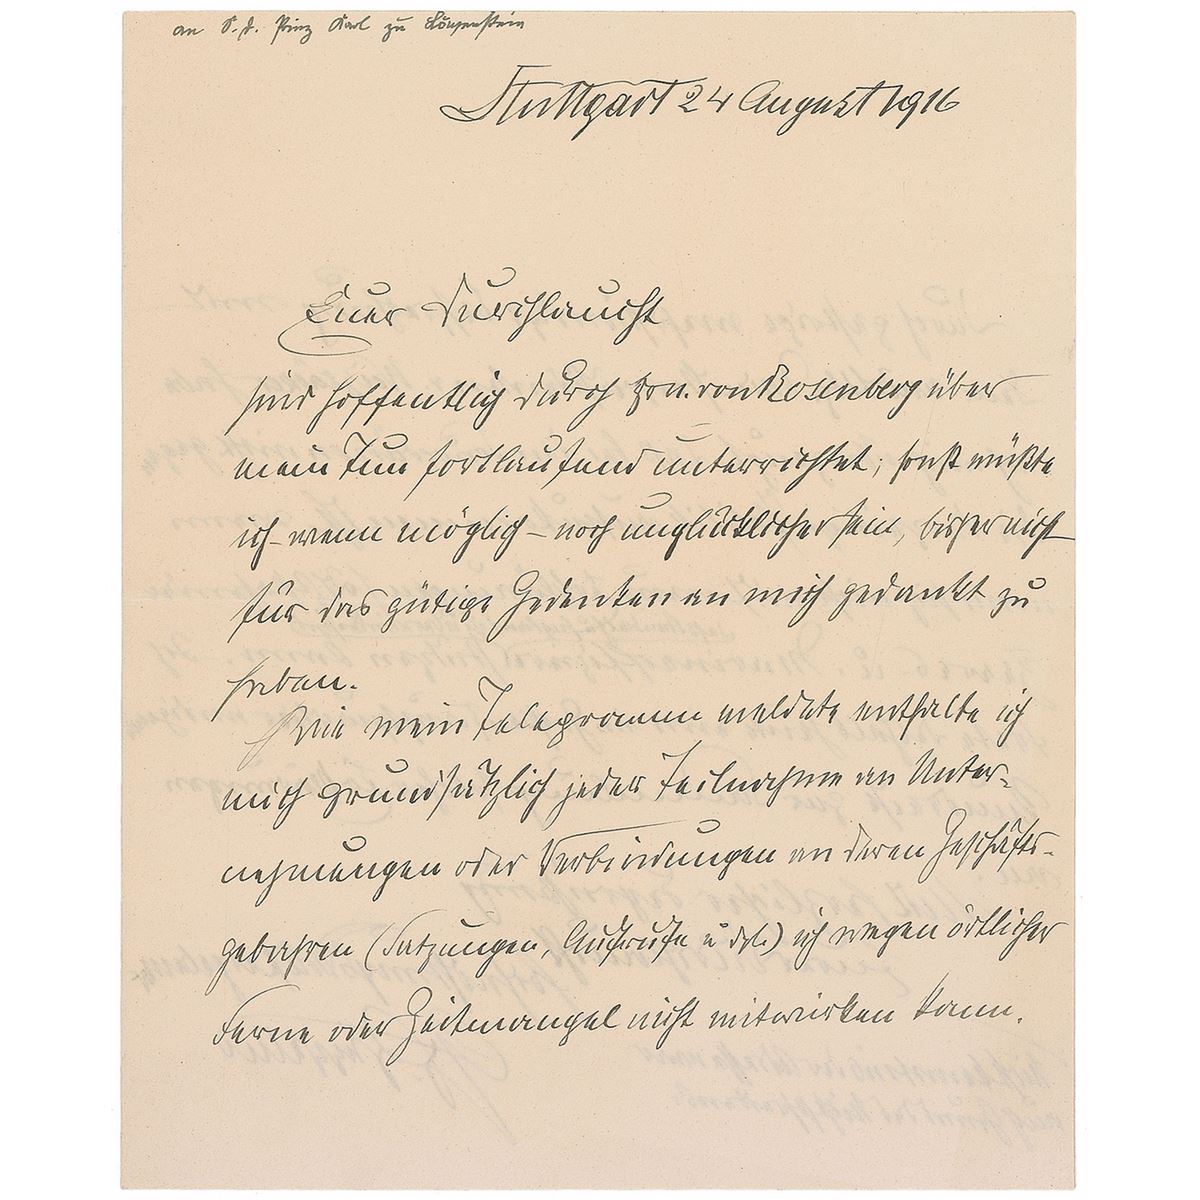 an S. D. Prinz Karl zu Löwenstein
Stuttgart 24 August 1916
Euer Durchlaucht
sind hoffentlich durch Hrn. von Rosenberg über
mein Tun fortlaufend unterrichtet; sonst müßte
ich – wenn möglich – noch unglücklicher sein, bisher nicht
für das gütige Gedenken an mich gedankt zu
haben.
Wie mein Telegramm meldete enthalte ich
mich grundsätzlich jeder Teilnahme an Unter-
nehmungen oder Verbindungen an deren Geschäfts-
gebahren (Satzungen, Aufrufe u dgl.) ich wegen örtlicher
Ferne oder Zeitmangel nicht mitwirken kann.